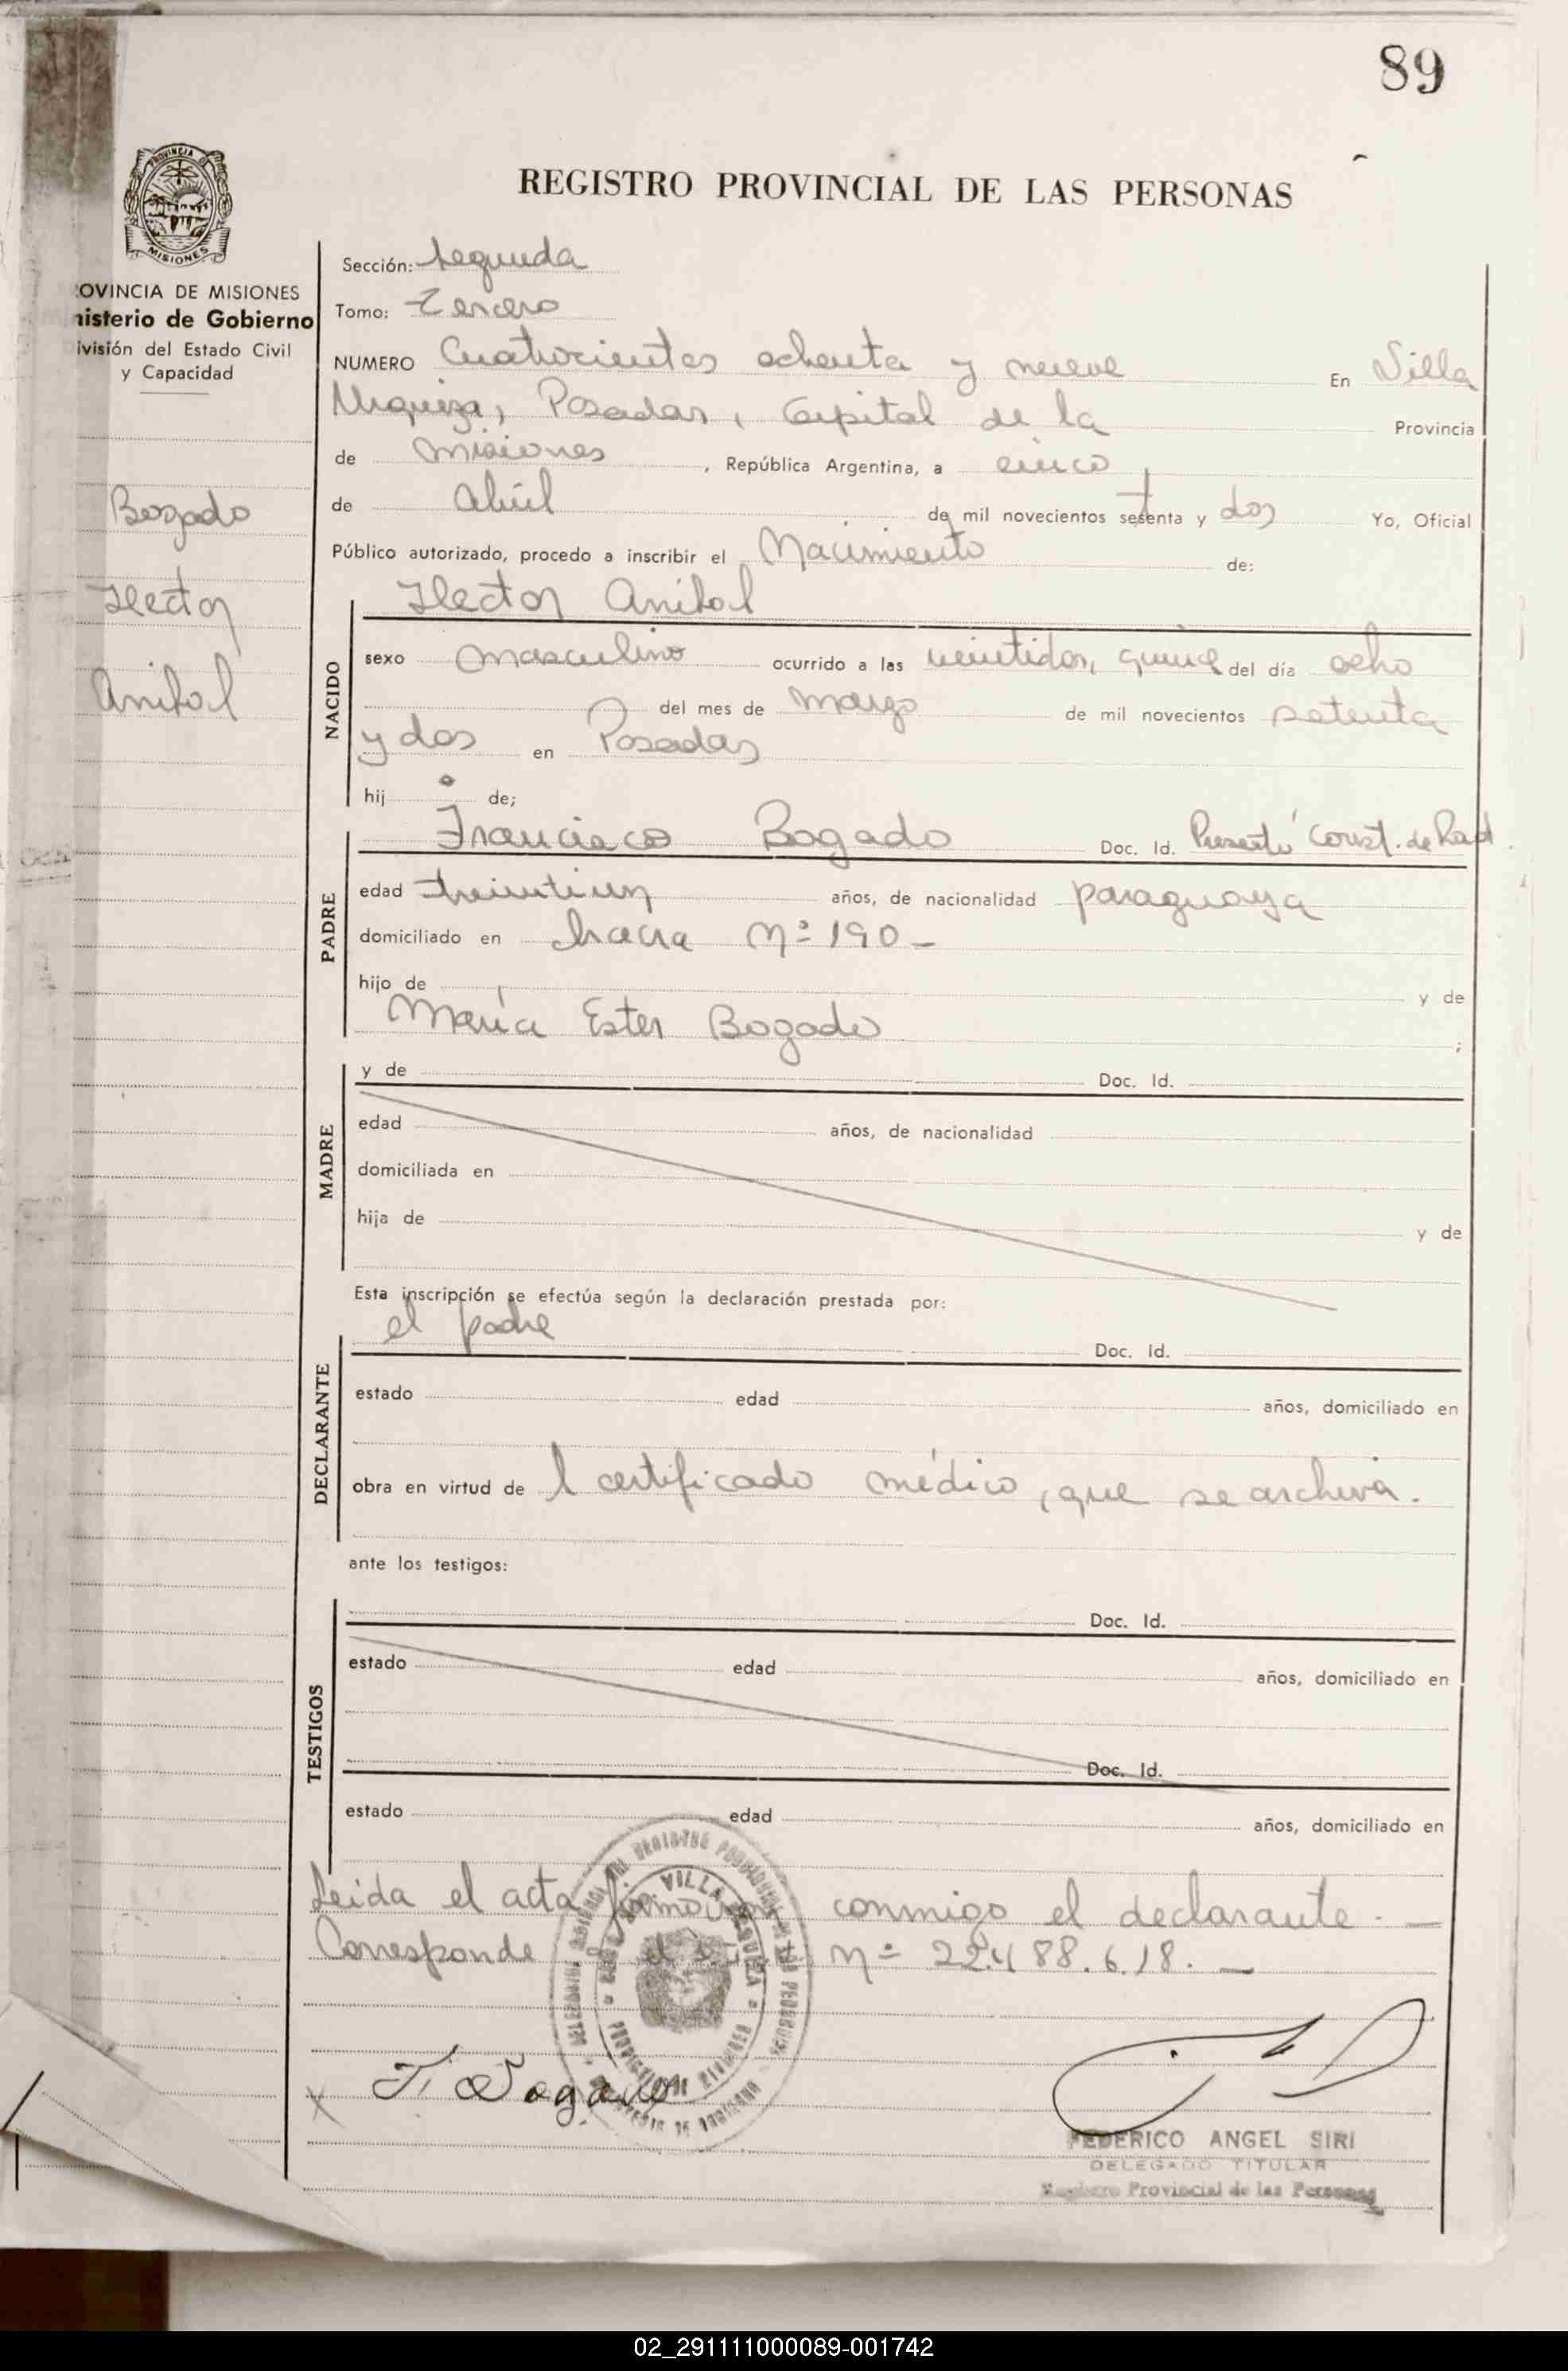 89
REGISTRO PROVINCIAL DE LAS PERSONAS
PROVINCIA DE
MISIONES
OVINCIA DE MISIONES
nisterio de Gobierno
ivisión del Estado Civil
y Capacidad
Bogado
Hector
Anibal
Sección: Segunda
Tomo: Tercero
NUMERO Cuatrocientos ochenta y nueve En Villa
Urquiza, Posadas, Capital de la Provincia
de Misiones, República Argentina, a cinco
de Abril de mil novecientos setenta y dos Yo, Oficial
Público autorizado, procedo a inscribir el Nacimiento de:
NACIDO
Hector Anibal
sexo masculino ocurrido a las veintidos, quince del día ocho
del mes de marzo de mil novecientos setenta
y dos en Posadas
hijo de;
PADRE
Francisco Bogado Doc. Id. Presentó Const. de Rad.
edad treintiun años, de nacionalidad paraguaya
domiciliado en chacra Nº 190 -
hijo de y de
María Ester Bogado ;
MADRE
y de Doc. Id.
edad años, de nacionalidad
domiciliada en
hija de y de
Esta inscripción se efectúa según la declaración prestada por:
DECLARANTE
el padre Doc. Id.
estado edad años, domiciliado en
obra en virtud de l certificado médico, que se archiva.
ante los testigos:
TESTIGOS
Doc. Id.
estado edad años, domiciliado en
Doc. Id.
estado edad años, domiciliado en
Leida el acta conmigo el declarante. —
Corresponde Nº 22.488.618. —
VILLA URQUIZA
F. Bogado
FEDERICO ANGEL SIRI
DELEGADO TITULAR
Registro Provincial de las Personas
02_291111000089-001742